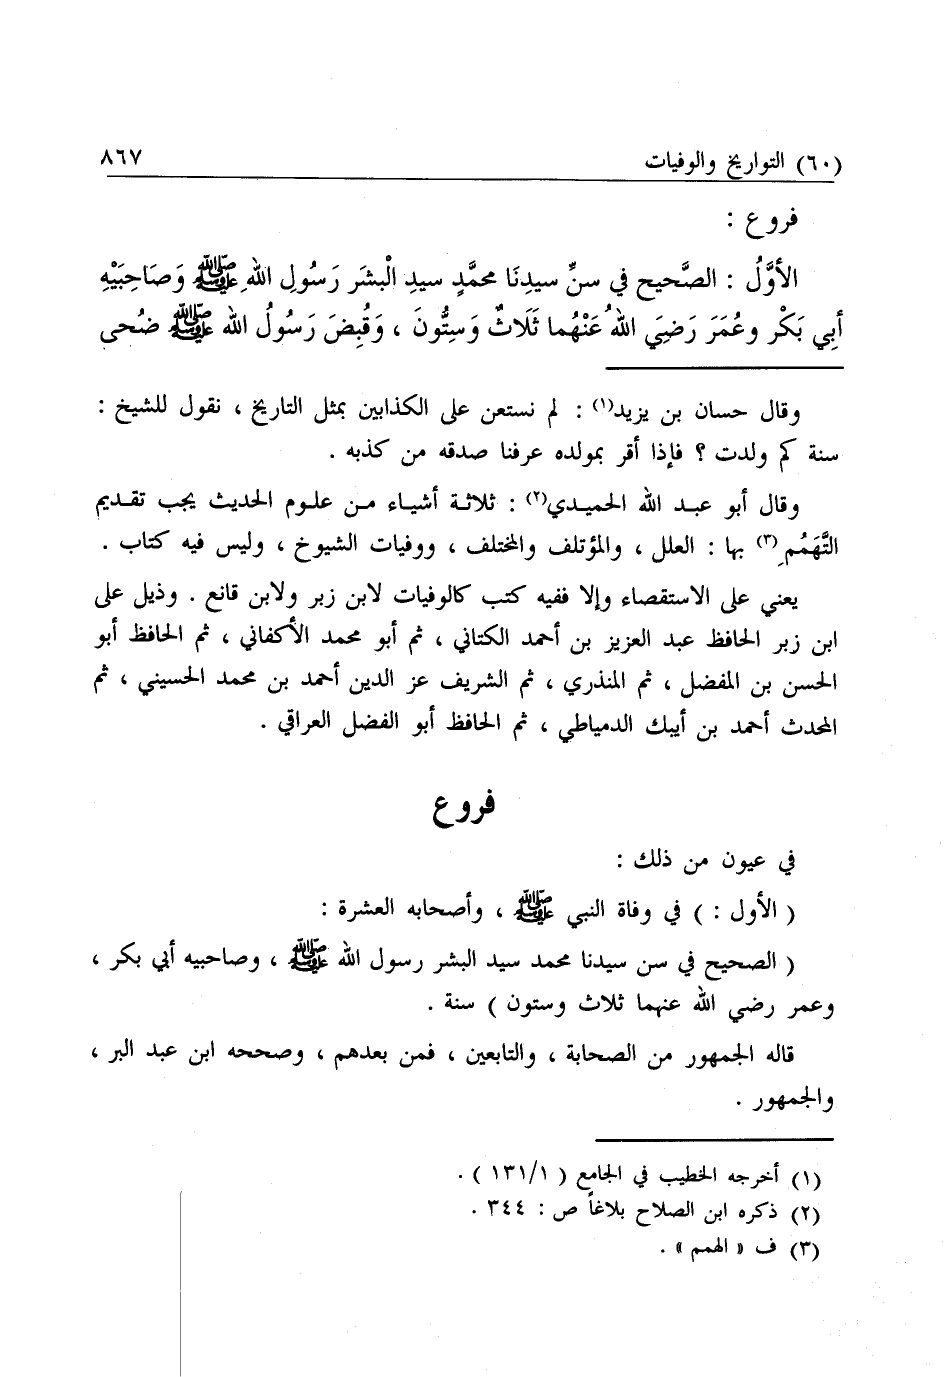 (٦٠) التواريخ والوفيات ٨٦٧
فروع :
الأوَّلُ : الصَّحيح في سنِّ سيدِنَا محمَّدٍ سيدِ الْبشَر رَسُولِ اللهِ ﷺ وَصَاحِبَيْهِ
أبِي بَكْر وعُمَرَ رَضِيَ اللهُ عَنْهُما ثَلَاثٌ وَستُّونَ ، وَقُبِضَ رَسُولُ الله ﷺ ضُحى
وقال حسان بن يزيد(١) : لم نستعن على الكذابين بمثل التاريخ ، نقول للشيخ :
سنة كم ولدت ؟ فإذا أقر بمولده عرفنا صدقه من كذبه .
وقال أبو عبد الله الحميدي(٢) : ثلاثة أشياء من علوم الحديث يجب تقديم
التَّهَمُمِ(٣) بها : العلل ، والمؤتلف والمختلف ، ووفيات الشيوخ ، وليس فيه كتاب .
يعني على الاستقصاء وإلا ففيه كتب كالوفيات لابن زبر ولابن قانع . وذيل على
ابن زبر الحافظ عبد العزيز بن أحمد الكتاني ، ثم أبو محمد الأكفاني ، ثم الحافظ أبو
الحسن بن المفضل ، ثم المنذري ، ثم الشريف عز الدين أحمد بن محمد الحسيني ، ثم
المحدث أحمد بن أيبك الدمياطي ، ثم الحافظ أبو الفضل العراقي .
فروع
في عيون من ذلك :
( الأول : ) في وفاة النبي ﷺ ، وأصحابه العشرة :
( الصحيح في سن سيدنا محمد سيد البشر رسول الله ﷺ ، وصاحبيه أبي بكر ،
وعمر رضي الله عنهما ثلاث وستون ) سنة .
قاله الجمهور من الصحابة ، والتابعين ، فمن بعدهم ، وصححه ابن عبد البر ،
والجمهور .
(١) أخرجه الخطيب في الجامع ( ١٣١/١ ) .
(٢) ذكره ابن الصلاح بلاغاً ص : ٣٤٤ .
(٣) ف « الهمم » .